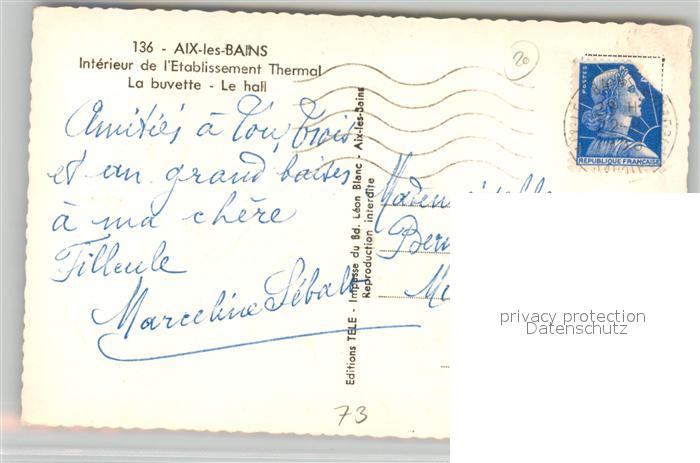 136 - AIX-les-BAINS
Intérieur de l'Etablissement Thermal
La buvette - Le hall
20
POSTES
REPUBLIQUE FRANÇAISE
Amitiés à Tou, Trois
et un grand baiser
à ma chère
Filleule
Marceline
Editions TELE - Impasse du Bd. Léon Blanc - Aix-les-Bains
Reproduction interdite
Mademoiselle
privacy protection
Datenschutz
73